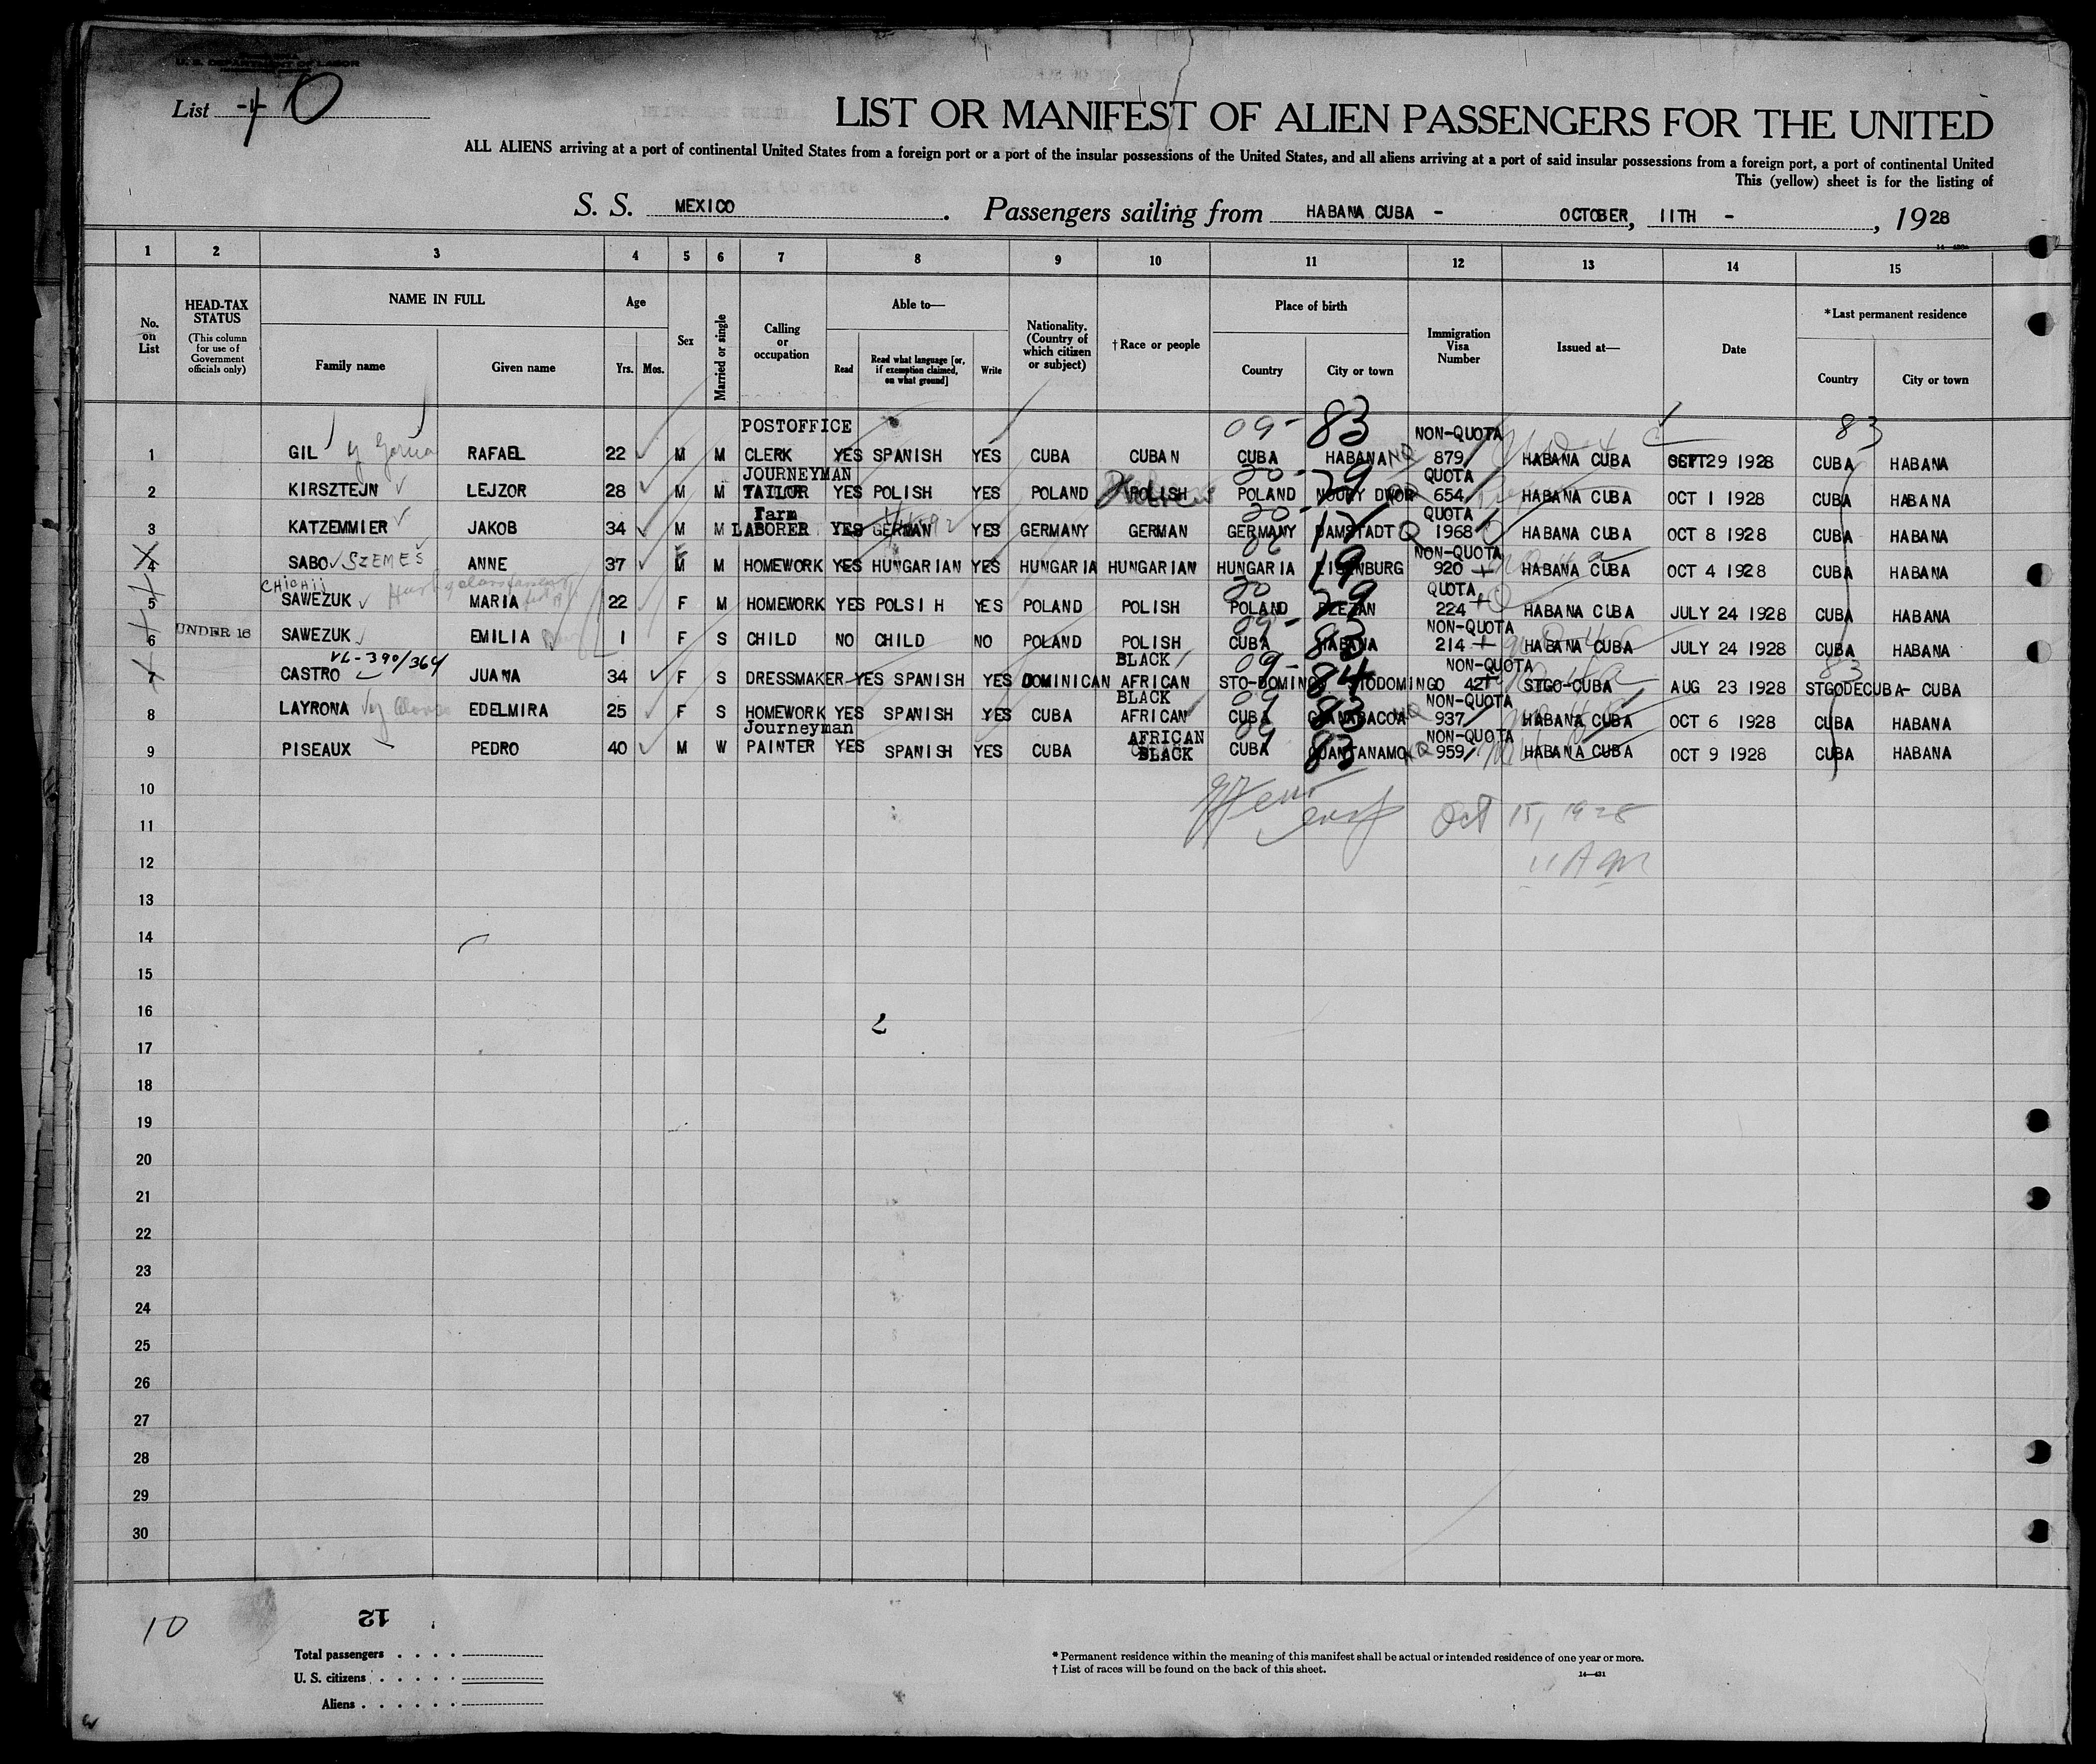 U. S. DEPARTMENT OF LABOR
List 10
LIST OR MANIFEST OF ALIEN PASSENGERS FOR THE UNITED
ALL ALIENS arriving at a port of continental United States from a foreign port or a port of the insular possessions of the United States, and all aliens arriving at a port of said insular possessions from a foreign port, a port of continental United
This (yellow) sheet is for the listing of
S. S. MEXICO . Passengers sailing from HABANA CUBA - OCTOBER, 11TH - , 1928
1 2 3 4 5 6 7 8 9 10 11 12 13 14 15
No. on List
HEAD-TAX STATUS (This column for use of Government officials only)
NAME IN FULL Family name Given name
Age Yrs. Mos.
Sex
Married or single
Calling or occupation
Able to— Read Read what language [or, if exemption claimed, on what ground] Write
Nationality. (Country of which citizen or subject)
† Race or people
Place of birth Country City or town
Immigration Visa Number
Issued at—
Date
* Last permanent residence Country City or town
POSTOFFICE 09- 83 NON-QUOTA 83
1 GIL y Garcia RAFAEL 22 M M CLERK YES SPANISH YES CUBA CUBAN CUBA HABANA NQ 879 HABANA CUBA SEPT 29 1928 CUBA HABANA
JOURNEYMAN 20- 29 QUOTA
2 KIRSZTEJN LEJZOR 28 M M TAILOR YES POLISH YES POLAND POLISH POLAND NOURY DWOR 654 HABANA CUBA OCT 1 1928 CUBA HABANA
Farm 20- QUOTA
3 KATZEMMIER JAKOB 34 M M LABORER YES GERMAN YES GERMANY GERMAN GERMANY DAMSTADT Q 1968 HABANA CUBA OCT 8 1928 CUBA HABANA
19 NON-QUOTA
4 SABO SZEMEŠ ANNE 37 F M HOMEWORK YES HUNGARIAN YES HUNGARIA HUNGARIAN HUNGARIA EISENBURG 920 HABANA CUBA OCT 4 1928 CUBA HABANA
CHICHIJ 20 29 QUOTA
5 SAWEZUK MARIA 22 F M HOMEWORK YES POLSIH YES POLAND POLISH POLAND 224 HABANA CUBA JULY 24 1928 CUBA HABANA
09- 83 NON-QUOTA
6 UNDER 16 SAWEZUK EMILIA 1 F S CHILD NO CHILD NO POLAND POLISH CUBA HABANA 214 HABANA CUBA JULY 24 1928 CUBA HABANA
VL-390/364 BLACK 09- 84 NON-QUOTA 83
7 CASTRO JUANA 34 F S DRESSMAKER YES SPANISH YES DOMINICAN AFRICAN STO-DOMINGO STODOMINGO 427 STGO-CUBA AUG 23 1928 STGODECUBA- CUBA
BLACK 09 83 NON-QUOTA
8 LAYRONA EDELMIRA 25 F S HOMEWORK YES SPANISH YES CUBA AFRICAN CUBA GUANABACOA NQ 937 HABANA CUBA OCT 6 1928 CUBA HABANA
Journeyman AFRICAN 09 83 NON-QUOTA
9 PISEAUX PEDRO 40 M W PAINTER YES SPANISH YES CUBA BLACK CUBA GUANTANAMO NQ 959 HABANA CUBA OCT 9 1928 CUBA HABANA
10
11 Oct 15, 1928
12 11 AM
13
14
15
16
17
18
19
20
21
22
23
24
25
26
27
28
29
30
10
12
Total passengers . . . .
U. S. citizens . . . . .
Aliens . . . . . .
* Permanent residence within the meaning of this manifest shall be actual or intended residence of one year or more.
† List of races will be found on the back of this sheet.
14—431